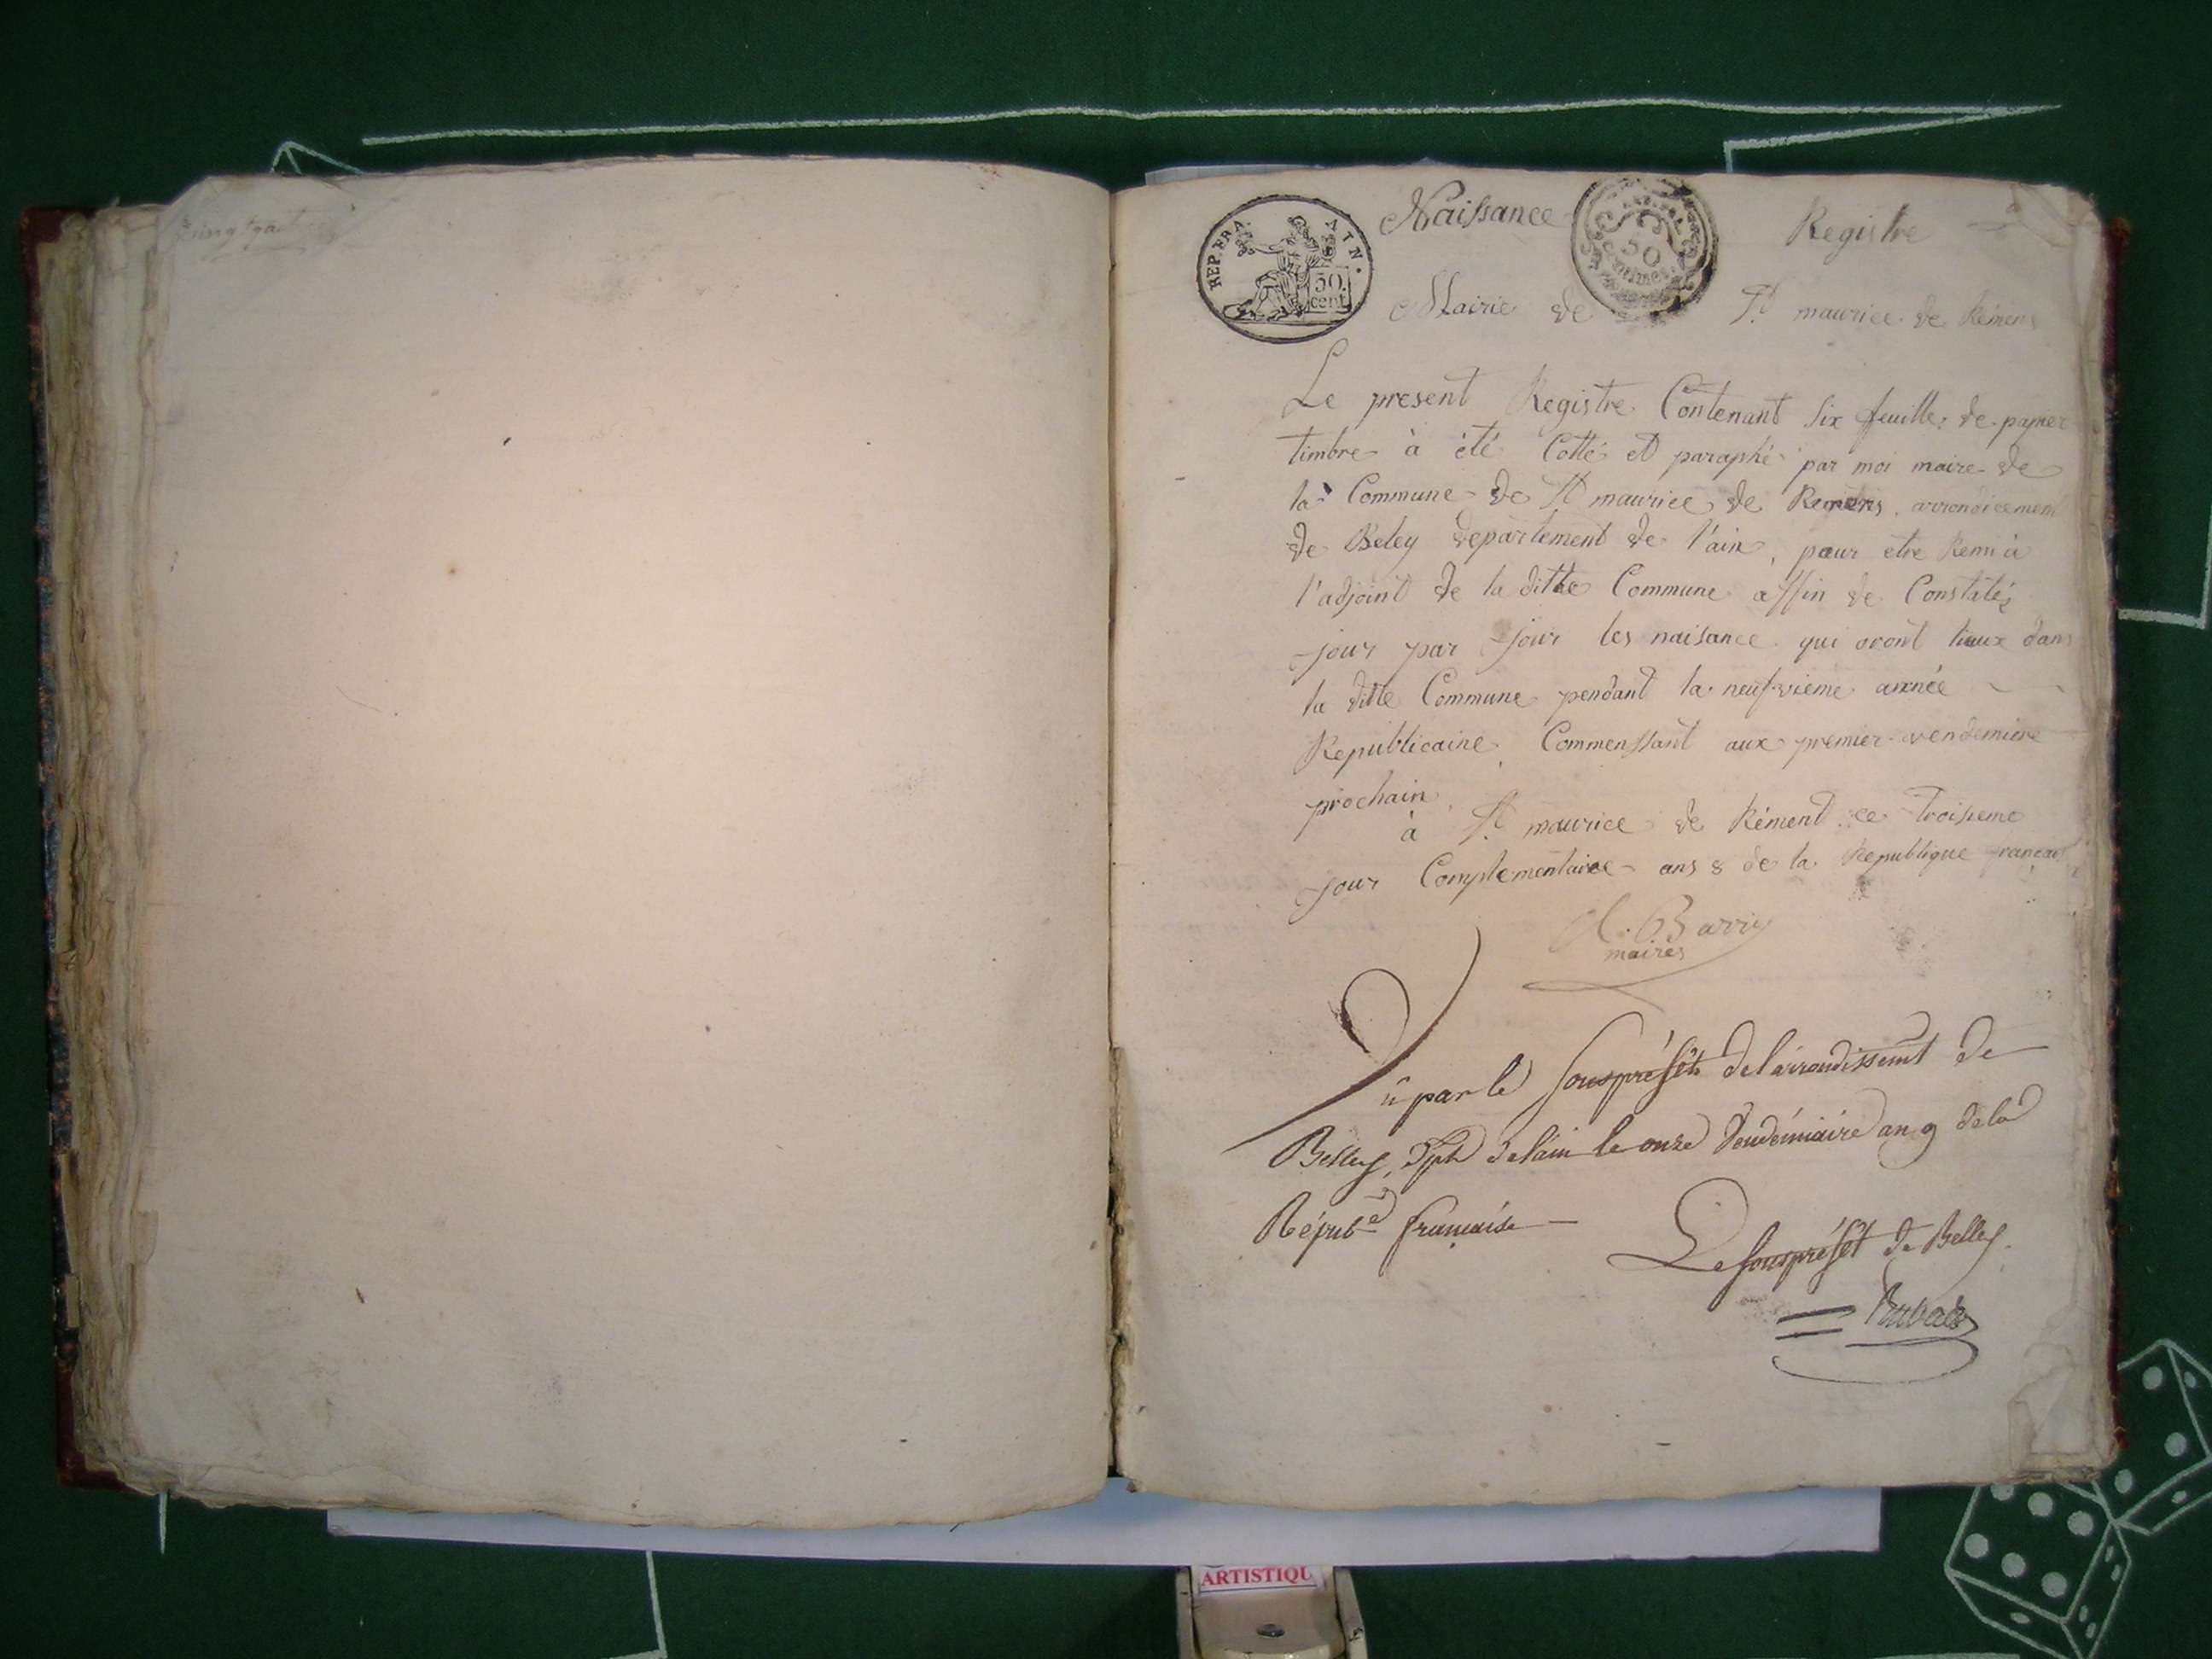 Naissance Registre
REP. FRA. AIN.
50 cent
50 Centimes
Mairie de St. maurice de Remens
Le present Registre Contenant Six feuille de papier
timbre à été Cotté et paraphé par moi maire de
la Commune de St maurice de Remens, arrondicement
de Beley departement de l'ain, pour etre Remi à
l'adjoint de la ditte Commune affin de Constaté
jour par jour les naisance qui oront lieux dans
la ditte Commune pendant la neufvieme année
Republicaine Commenssant aux premier vendemiere
prochain
à St. maurice de Rément ce troisieme
jour Complementaire ans 8 de la Republique francais
Barry
maires
Vû par le souspréfêt de l'arrondissemt de
Belley, Dpt de l'ain le onze Vendémiaire an 9 de la
Répube française
Le souspréfêt de Belley
ARTISTIQU